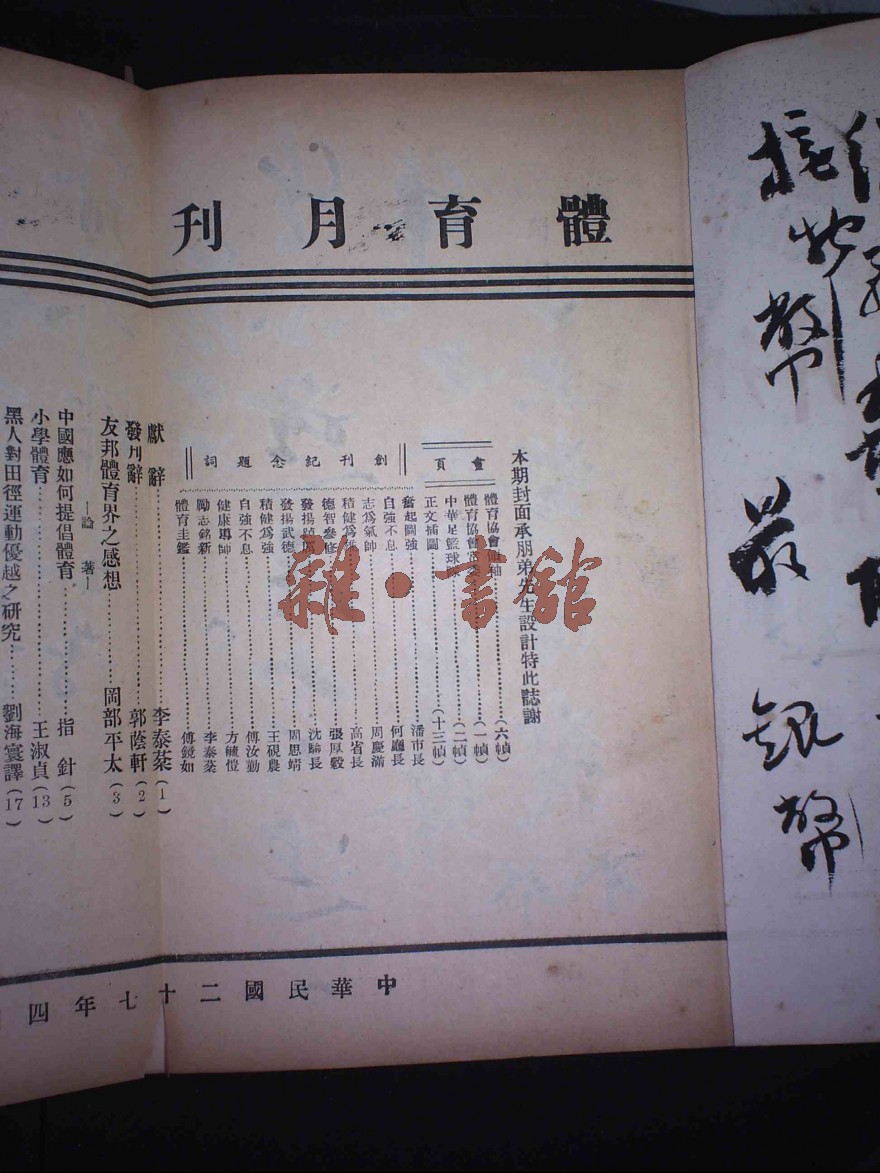 體育月刊
本期封面承朋弟先生設計特此誌謝
畫頁
體育協會
(六幀)
體育協會
(一幀)
中華足籃球隊
(二幀)
正文插圖
(十三幀)
創刊紀念題詞
奮起圖強
潘市長
自強不息
何廳長
志爲氣帥
周慶滿
積健爲
高省長
德智叄修
張厚毅
發揚
沈驗長
發揚武德
周思靖
積健爲強
王硯農
自強不息
傅汝勤
健康導師
方毓愷
勵志銘新
李泰棻
體育圭鑑
傅鏡如
獻辭
李泰棻(1)
發刊辭
郭蔭軒(2)
友邦體育界之感想
岡部平太(3)
—論著—
中國應如何提倡體育
指針(5)
小學體育
王淑貞(13)
黑人對田徑運動優越之研究
劉海寰譯(17)
中華民國二十七年四
雜·書館
幣
銀幣